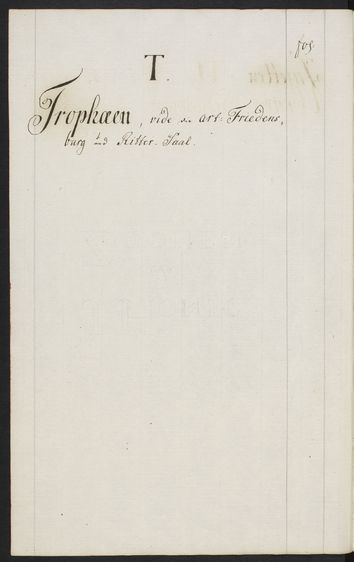 705.
T.
Trophæen, vide s. art: Friedens,
burg und Ritter-Saal.